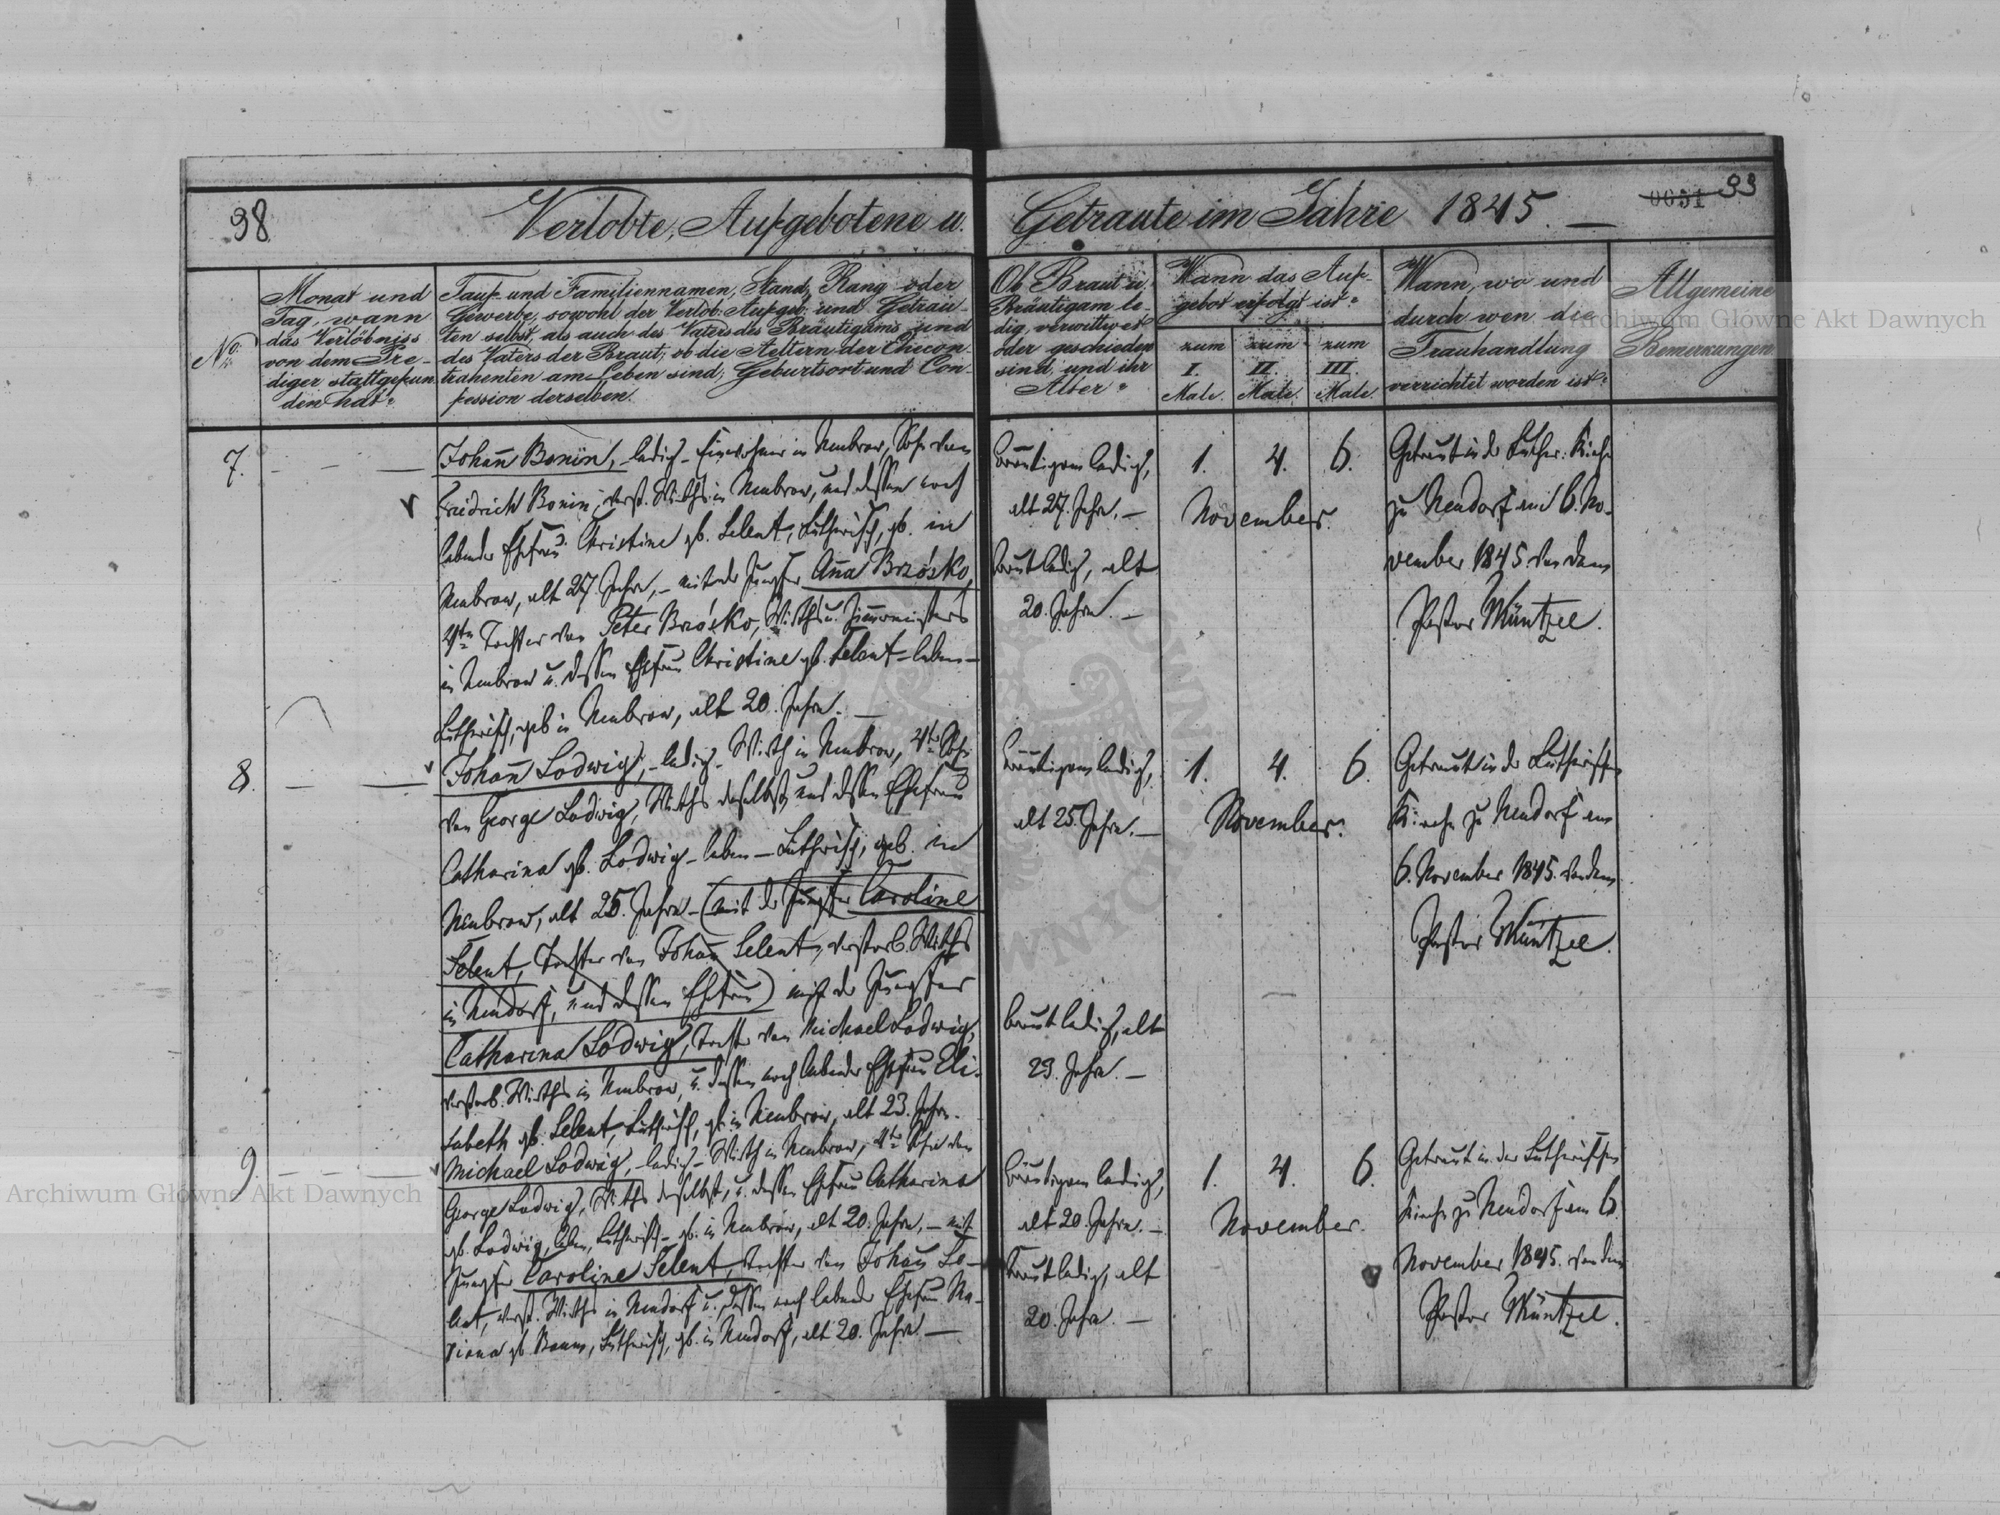 98.
Verlobte, Aufgebotene u. Getraute im Jahre 1845. —
0651 99
No.
Monat und
Tag, wann
das Verlöbniss
von dem Pre-
diger stattgefun
den hat.
Tauf- und Familiennamen, Stand, Rang oder
Gewerbe, sowohl der Verlob. Aufgeb. und Getrau-
ten selbst, als auch des Vaters des Bräutigams und
des Vaters der Braut; ob die Aeltern der Checon-
trahenten am Leben sind; Geburtsort und Con-
fession derselben.
Ob Braut u.
Bräutigam le-
dig, verwittwet
oder geschieden
sind, und ihr
Alter.
Wann das Auf-
gebot erfolgt ist.
zum I. Male.
zum II. Male.
zum III. Male.
Wann, wo und
durch wen die
Trauhandlung
verrichtet worden ist.
Allgemeine
Bemerkungen
7.
Johañ Bonin, ledig - Einwohner in Neubrow, Sohn von
Friedrich Bonin, verst. Wirths in Neubrow, und dessen noch
lebender Ehefrau Christine gb. Selent, Lutherisch, gb. in
Neubrow, alt 27 Jahre, – mit der Jungfer Aña Brzósko,
Tochter von Peter Brzósko, Wirths u. Zimermeisters
in Neubrow u. dessen Ehefrau Christine gb. Selent - leben -
Lutherisch, geb in Neubrow, alt 20. Jahre. —
Bräutigam ledig,
alt 27. Jahre. —
Braut ledig, alt
20. Jahre. —
1. 4. 6.
November.
Getraut in der Luther. Kirche
zu Neudorf am 6. No-
vember 1845. von dem
Pastor Müntzel.
8.
Johañ Lodwig, - ledig - Wirth in Neubrow, 4te Sohn
von George Lodwig, Wirths daselbst, und dessen Ehefrau
Catharina gb. Lodwig - leben - Lutherisch, geb. in
Neubrow, alt 25. Jahre - (mit der Jungfer Caroline
Selent, Tochter von Johañ Selent, verstorb. Wirths
in Neudorf, und dessen Ehefrau) mit der Jungfer
Catharina Lodwig, Tochter von Michael Lodwig,
verstorb. Wirths in Neubrow, u. dessen noch lebender Ehefrau Eli-
sabeth gb. Selent, Lutherisch, gb. in Neubrow, alt 23. Jahre.
Bräutigam ledig,
alt 25. Jahre. —
Braut ledig, alt
23. Jahre. —
1. 4. 6.
November.
Getraut in der Lutherischen
Kirche zu Neudorf am
6. November 1845. von dem
Pastor Müntzel.
9.
Michael Lodwig, - ledig - Wirth in Neubrow, Sohn von
George Lodwig, Wirths daselbst, u. dessen Ehefrau Catharina
gb. Lodwig, leben, Lutherisch - gb. in Neubrow, alt 20. Jahre, – mit
Jungfer Caroline Selent, Tochter von Johañ Se-
lent, verst. Wirths in Neudorf u. dessen noch lebender Ehefrau Ma-
riana gb. , Lutherisch, gb. in Neudorf, alt 20. Jahre —
Bräutigam ledig,
alt 20. Jahre. —
Braut ledig, alt
20. Jahre. —
1. 4. 6.
November.
Getraut in der Lutherischen
Kirche zu Neudorf am 6.
November 1845. von dem
Pastor Müntzel.
Archiwum Główne Akt Dawnych
Archiwum Główne Akt Dawnych